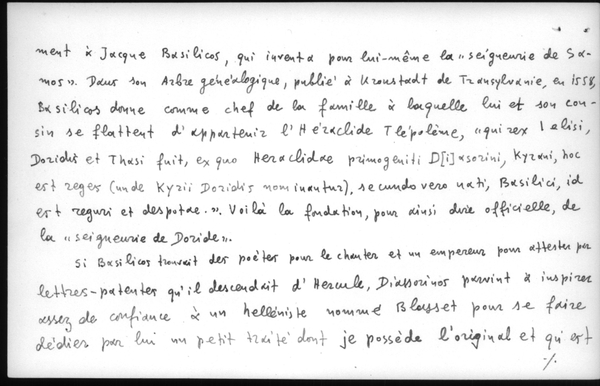 ment à Jacque Basilicos, qui inventa pour lui-même la "seigneurie de Sa-
mos". Dans son Arbre généalogique, publié à Kronstadt de Transylvanie, en 1558,
Basilicos donne comme chef de la famille à laquelle lui et son cou-
sin se flattent d'appartenir l'Héraclide Tlépolème, "qui rex Ielisi,
Doridis et Thasi fuit, ex quo Heraclidae primogeniti D[i]asorini, Kyrani, hoc
est reges (unde Kyrii Doridis nominantur), secundo vero nati, Basilici, id
est reguri et despotae.". Voilà la fondation, pour ainsi dire officielle, de
la "seigneurie de Doride".
Si Basilicos trouvait des poètes pour le chanter et un empereur pour attester par
lettres-patentes qu'il descendait d'Hercule, Diassorinos parvint à inspirer
assez de confiance à un helléniste nommé Blasset pour se faire
dédier par lui un petit traité dont je possède l'original et qui est
./.